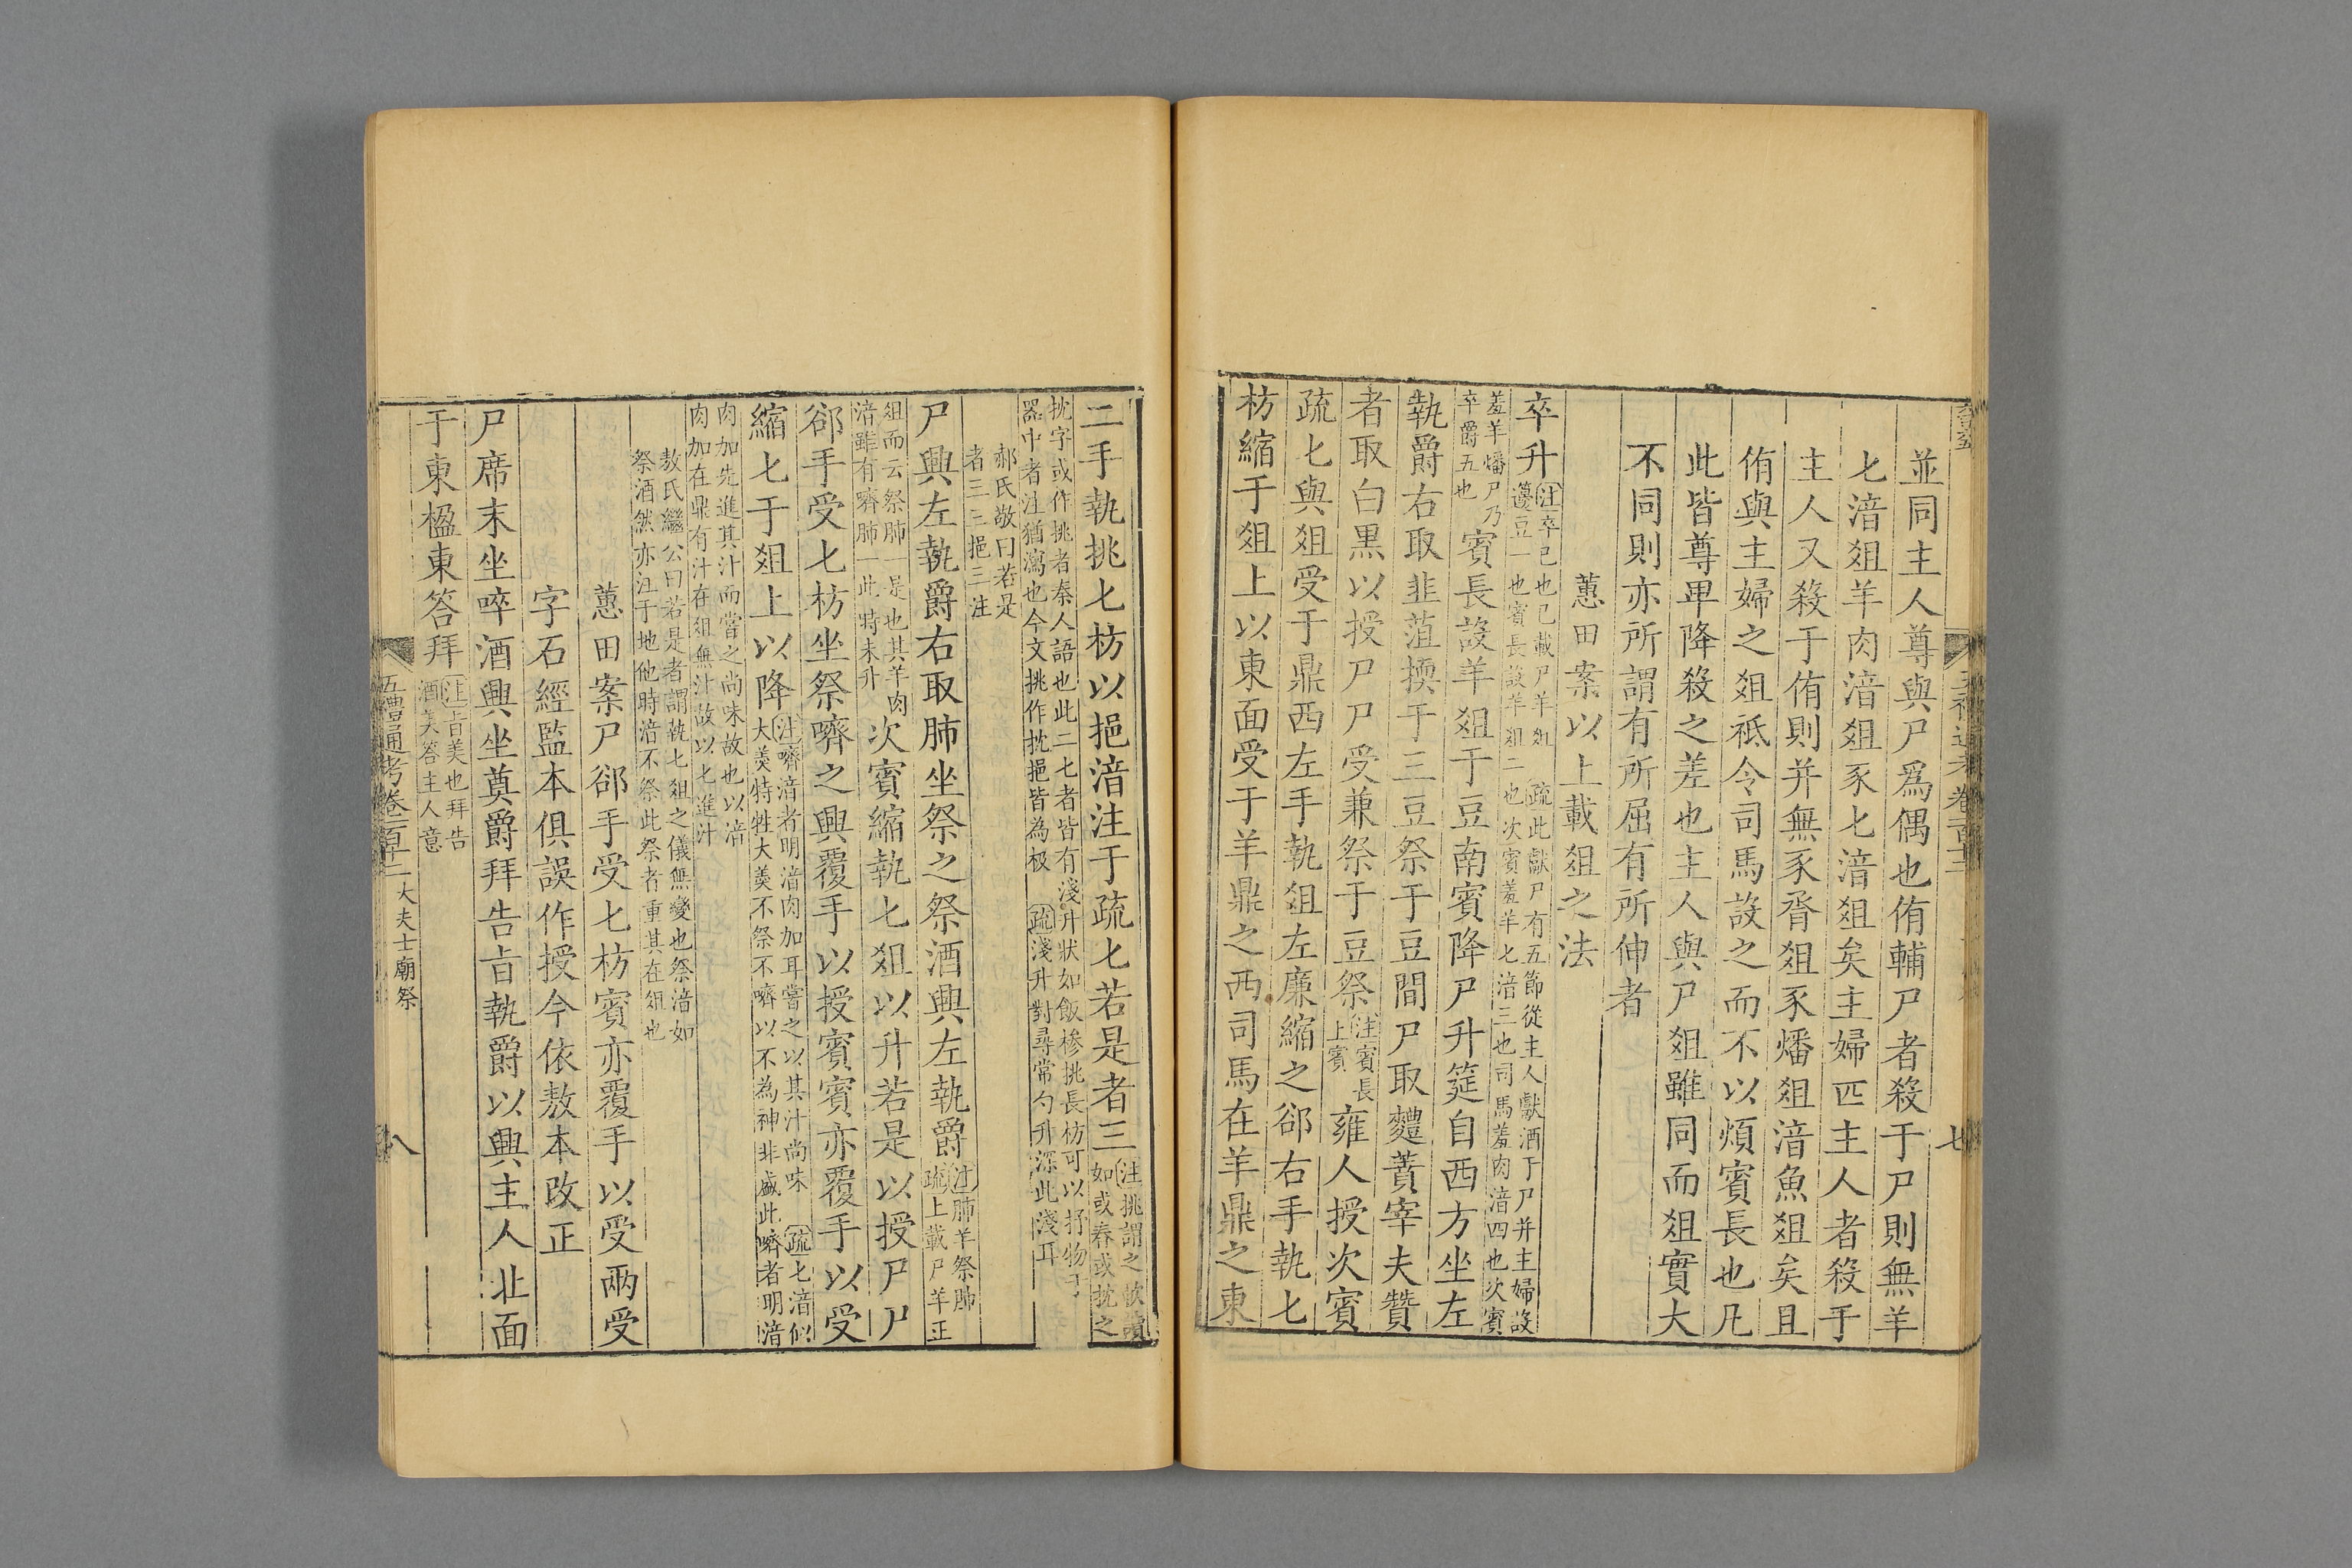 並同主人尊與尸爲偶也侑輔尸者殺于尸則無羊
匕湆俎羊肉湆俎豕匕湆俎矣主婦匹主人者殺于
主人又殺于侑則并無豕脀俎豕燔俎湆魚俎矣且
侑與主婦之俎祗令司馬設之而不以煩賓長也凡
此皆尊卑降殺之差也主人與尸俎雖同而俎實大
不同則亦所謂有所屈有所伸者
蕙田案以上載俎之法
卒升
注卒已也已載尸羊俎
疏此獻尸有五節從主人獻酒于尸并主婦設
籩豆一也賓長設羊俎二也次賓羞羊匕湆三也司馬羞肉湆四也次賓
羞羊燔尸乃
卒爵五也
賓長設羊俎于豆南賓降尸升筵自西方坐左
執爵右取韭菹揳于三豆祭于豆間尸取麷蕡宰夫贊
者取白黑以授尸尸受兼祭于豆祭
注賓長
上賓
雍人授次賓
疏匕與俎受于鼎西左手執俎左廉縮之郤右手執匕
枋縮于俎上以東面受于羊鼎之西司馬在羊鼎之東
二手執挑匕枋以挹湆注于疏匕若是者三
注挑謂之
如或舂或抌之
抌字或作挑者秦人語也此二匕者皆有淺升狀如飯橾挑長枋可以抒物于
器中者注猶瀉也今文挑作抌挹皆為极
疏淺升對尋常勺升深此淺耳
郝氏敬曰若是
者三三挹三注
尸興左執爵右取肺坐祭之祭酒興左執爵
注肺羊祭肺
疏上載尸羊正
俎而云祭肺一是也其羊肉
湆雖有嚌肺一此時未升
次賓縮執匕俎以升若是以授尸尸
郤手受匕枋坐祭嚌之興覆手以授賓賓亦覆手以受
縮匕于俎上以降
注嚌湆者明湆肉加耳嘗之以其汁尚味
疏匕湆似
大羮特牲大羮不祭不嚌以不為神非盛此嚌者明湆
肉加先進其汁而嘗之尚味故也以湆
肉加在鼎有汁在俎無汁故以匕進汁
敖氏繼公曰若是者謂執匕俎之儀無變也祭湆如
祭酒然亦注于地他時湆不祭此祭者重其在俎也
蕙田案尸郤手受匕枋賓亦覆手以受兩受
字石經監本俱誤作授今依敖本改正
尸席末坐啐酒興坐奠爵拜告旨執爵以興主人北面
于東楹東答拜
注旨美也拜告
酒美答主人意
五禮通考卷一百十二
大夫士廟祭
八